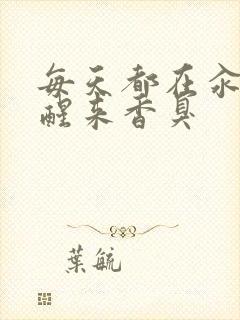 每天都在
醒来香臭
葉毓